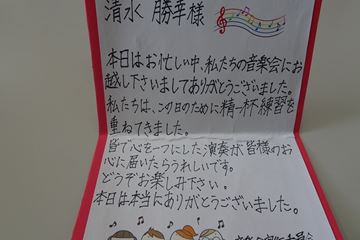 清水 勝幸様
本日はお忙しい中、私たちの音楽会にお
越し下さいましてありがとうございました。
私たちは、この日のために精一杯練習を
重ねてきました。
皆で心を一つにした演奏が、皆様のお
心に届いたらうれしいです。
どうぞお楽しみ下さい。
本日は本当にありがとうございました。